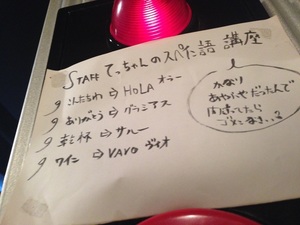 STAFF てっちゃんのスペイン語 講座
こんにちわ ⇨ HOLA オラー
ありがとう ⇨ グラシアス
乾杯 ⇨ サルー
ワイン ⇨ VAVO ヴィオ
かなり
あやふやだったんで
間違ってたら
ゴメンなさい..?